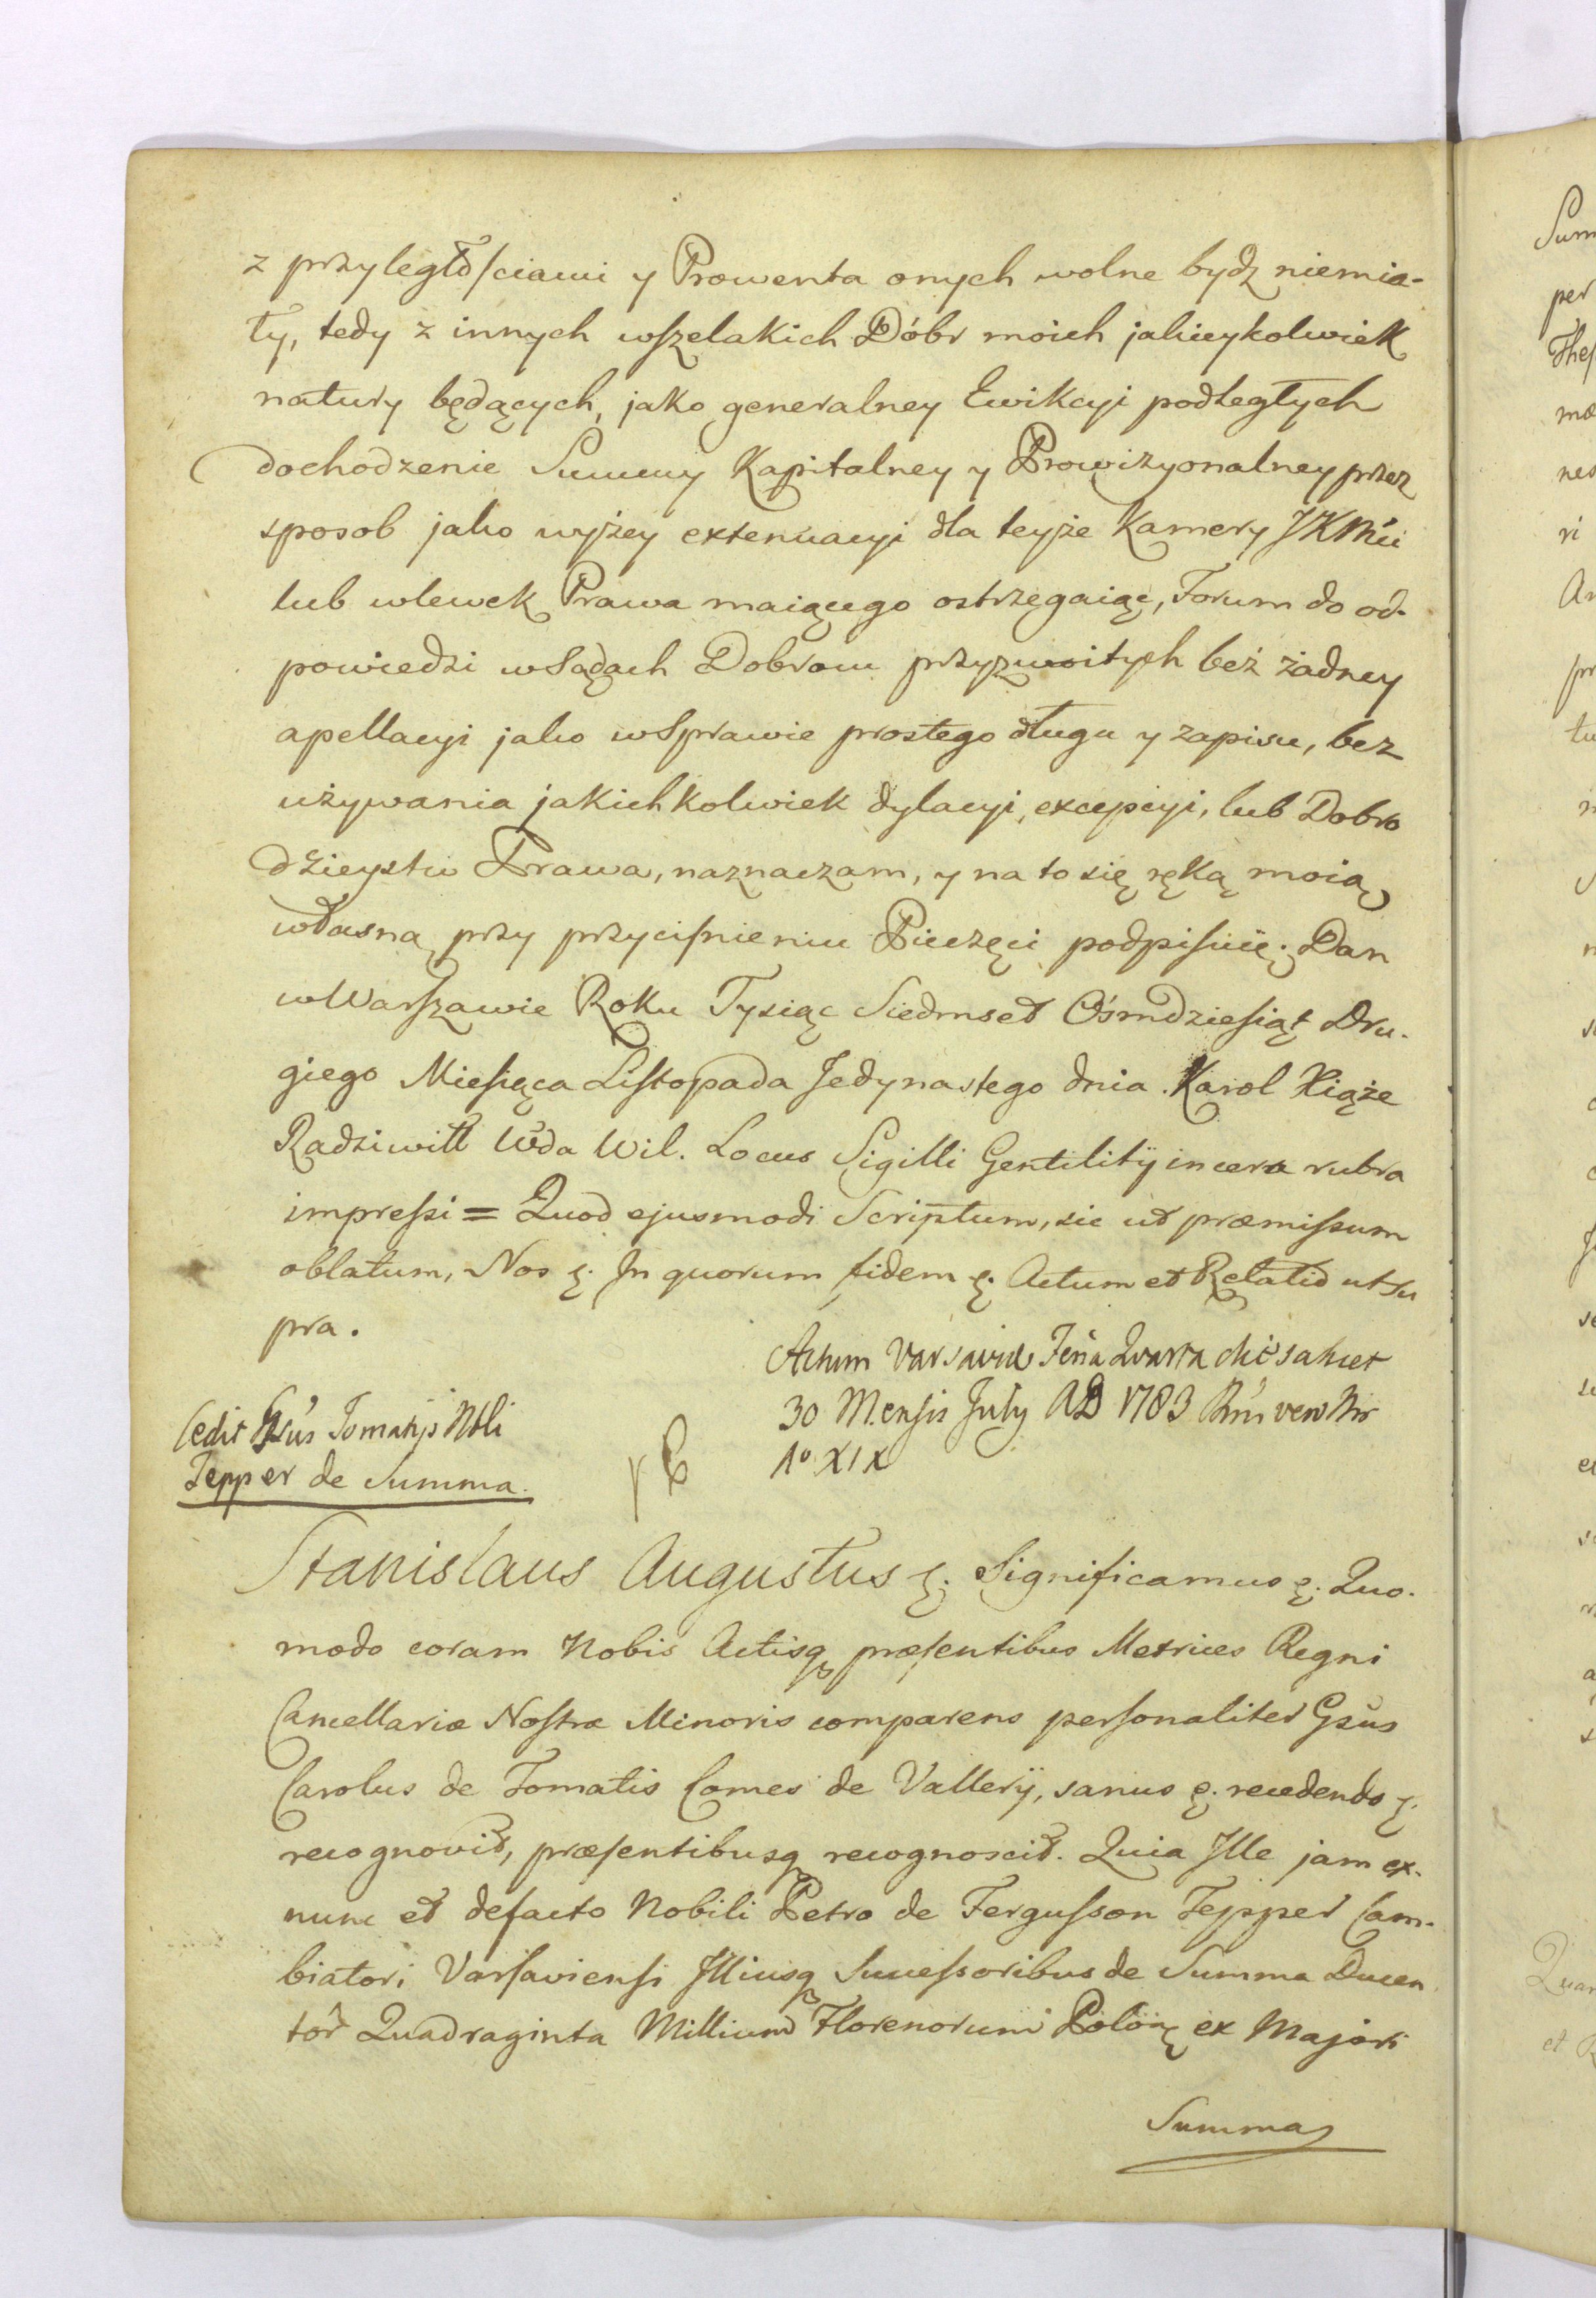 z przyległościami y Prowenta onych wolne bydz niemia-
ły, tedy z innych wszelakich Dóbr moich jakieykolwiek
natury będących, jako generalney Ewikcyi podległych
dochodzenie Summy Kapitalney y Prowizyonalney przez
sposob jako wyżey extenuacyi dla teyże Kamery JKMci
lub wlewek Prawa maiącego ostrzegaiąc, Forum do od-
powiedzi w Sądach Dobrom przyzwoitych beż żadney
apellacyi jako w Sprawie prostego długu y zapisu, bez
używania jakichkolwiek dylacyi, excepcyi, lub Dobro
dzieystw Prawa, naznaczam, y na to się ręką moią
własną przy przyciśnieniu Pieczęci podpisuię. Dan
w Warszawie Roku Tysiąc Siedmset Ośmdziesiąt Dru-
giego Miesięca Listopada Jedynastego dnia. Karol Xiąże
Radziwiłł Wda Wil. Locus Sigilli Gentilitij in cera rubra
impressi = Quod ejusmodi Scriptum, sic ut præmissum
oblatum, Nos &. In quorum fidem &. Actum et Relatio ut su
pra.
Actum Varsaviæ Feria Quarta
30 Mensis July AD 1783 Rni vero Nri
Ao XIX
Cedit Gsus Tomatys Nbli
Tepper de Summa.
Stanislaus Augustus &. Significamus &. Quo-
modo coram Nobis Actisq præsentibus Metrices Regni
Cancellariæ Nostræ Minoris comparens personaliter Gsus
Carolus de Tomatis Comes de Vallerij, sanus &. recedendo &.
recognovit, præsentibusq recognoscit. Quia Ille jam ex-
nunc et defacto Nobili Petro de Fergusson Tepper Cam-
biatori Varsaviensi Illiusq Successoribus de Summa Ducen
tor Quadraginta Millium Florenorum Polon ex Majori
Summa